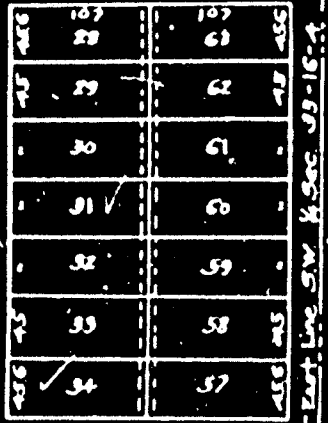 107 107
45.6 28 63 45.6
45 29 62 45
" 30 61 "
" 31 60 "
" 32 59 "
45 33 58 45
45.6 34 57 45.6
East Line S.W. ¼ Sec. 33-16-4